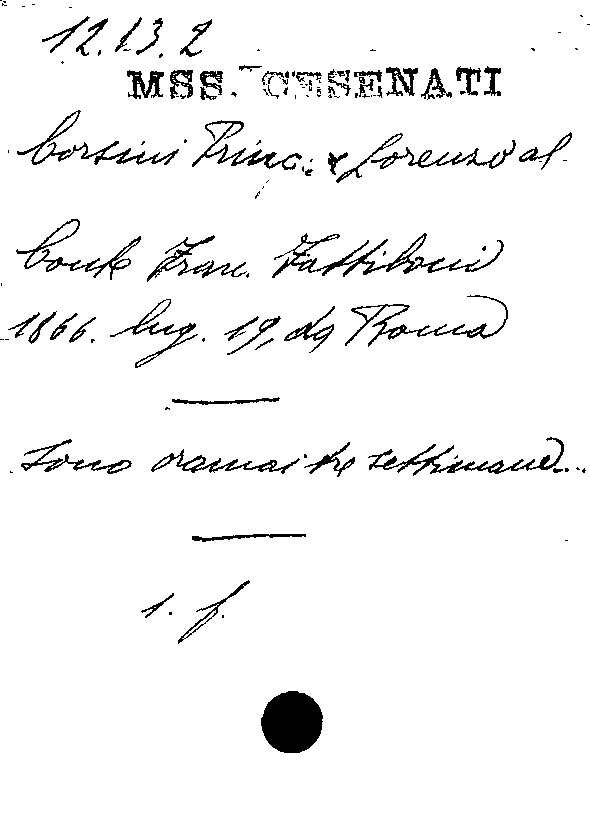 12.13.2
MSS. CESENATI
Corsini Princ. Lorenzo al
Conte Fran. Fattiboni
1866. lug. 19, da Roma
Sono oramai tre settimane...
1. f.